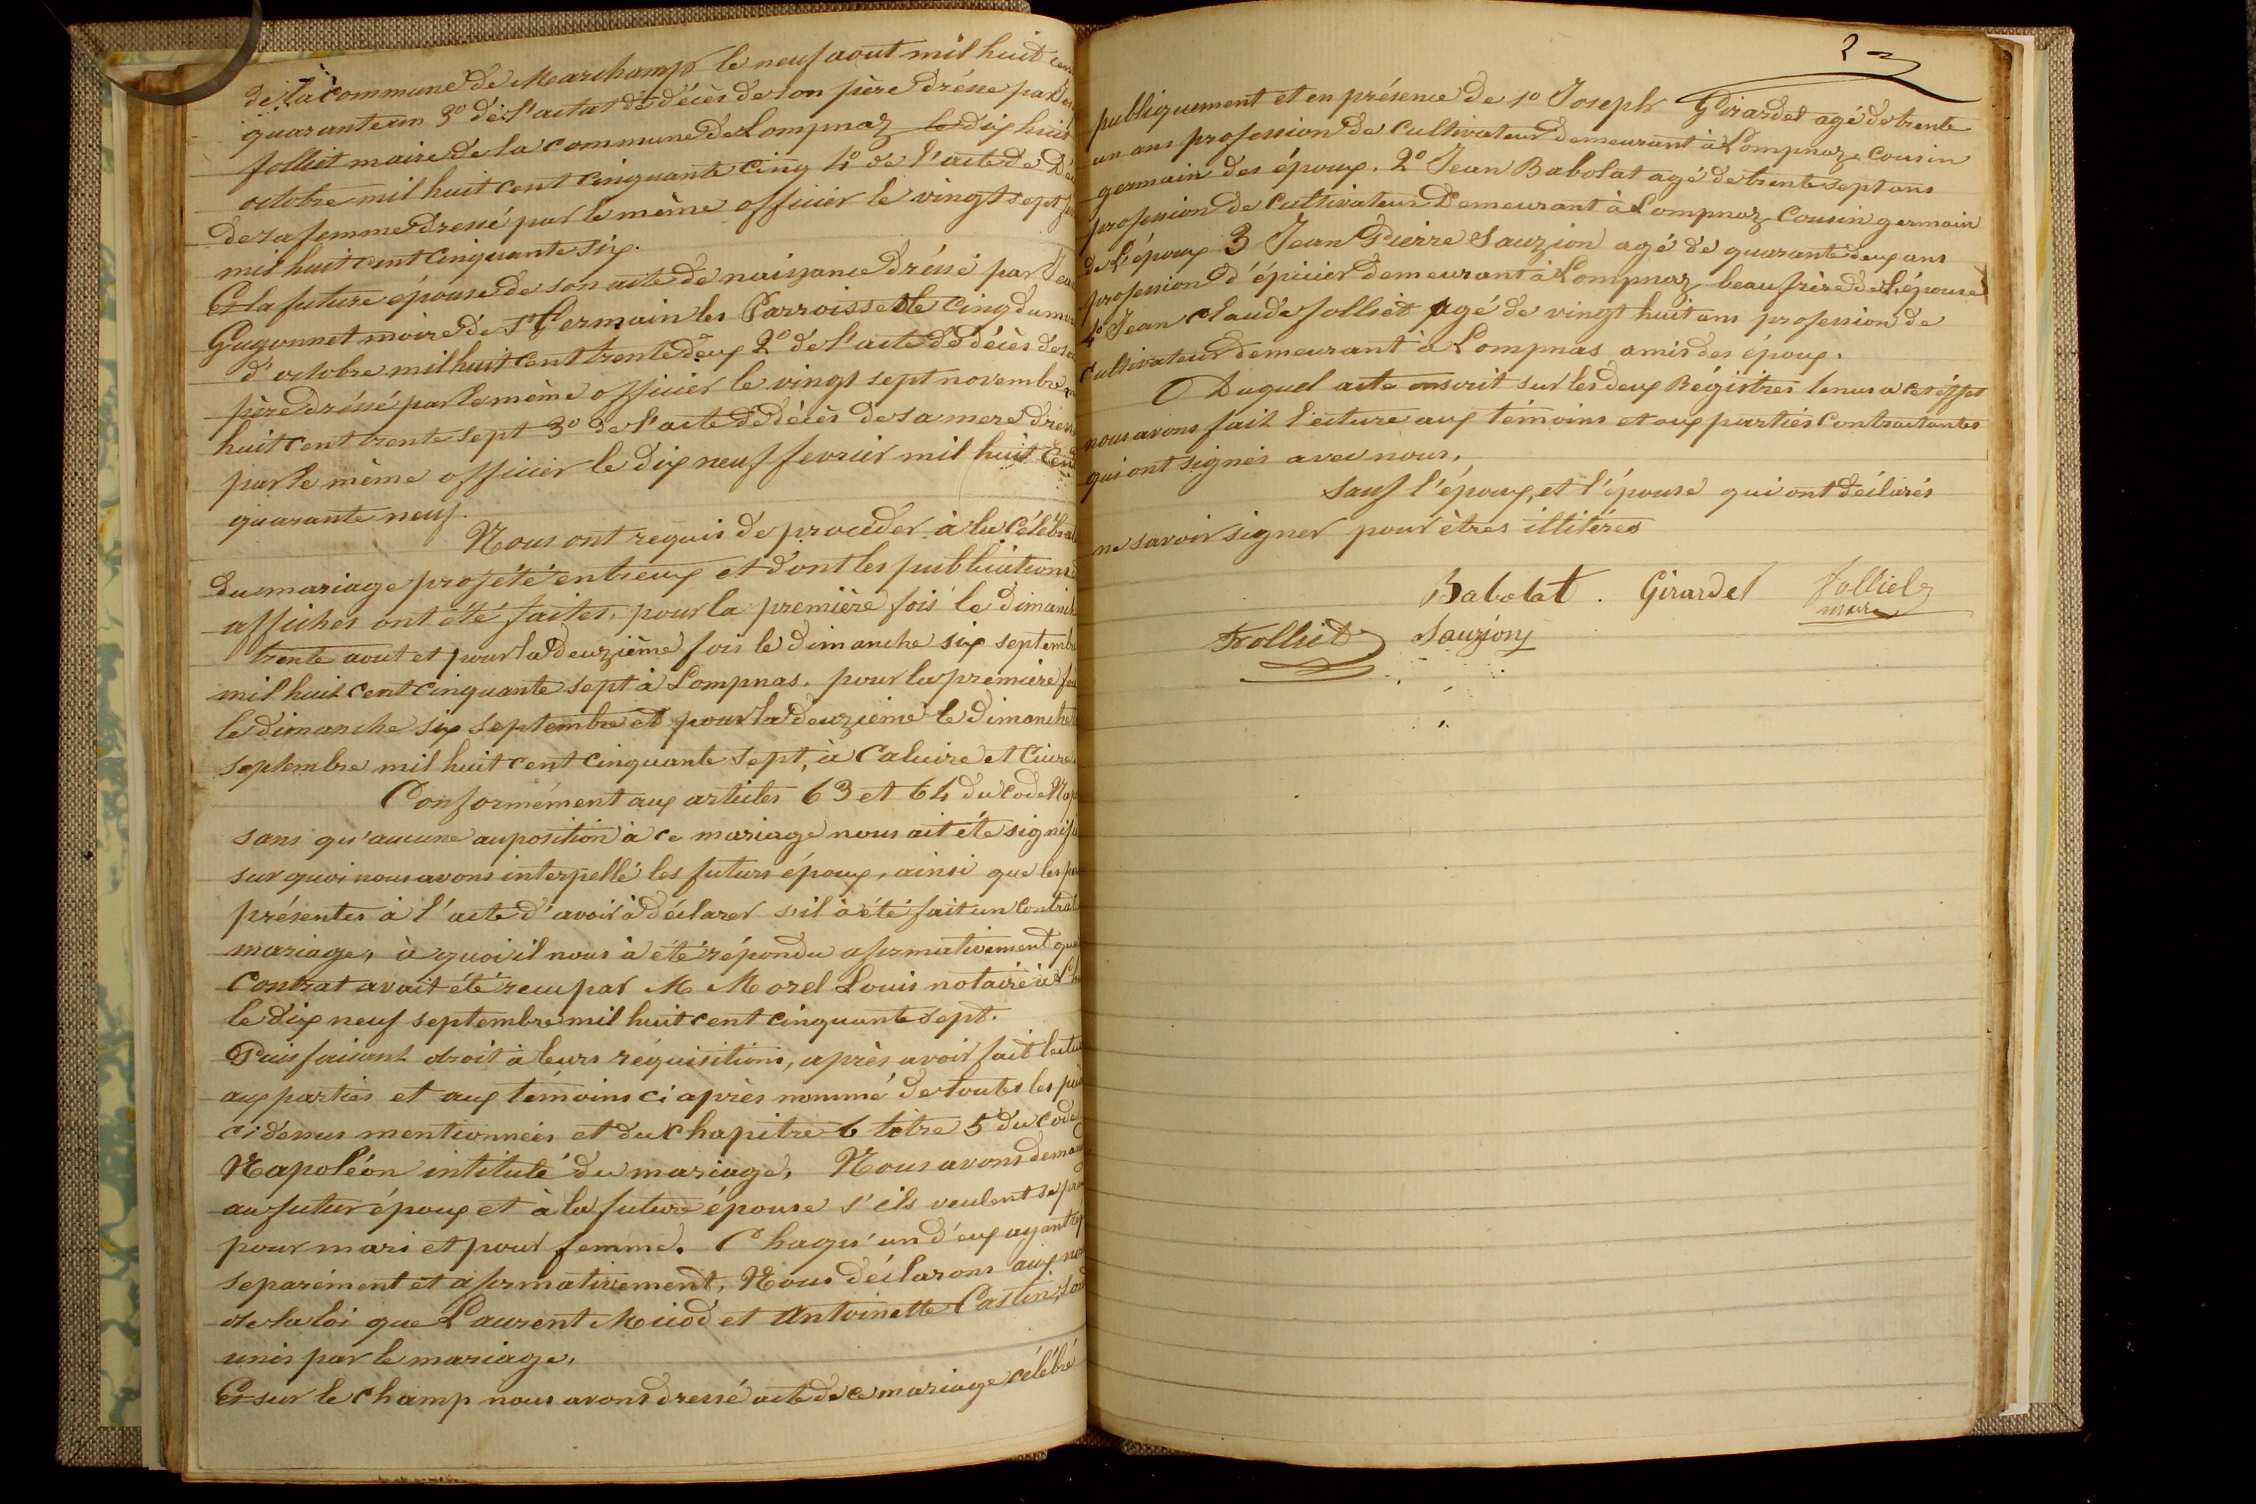 de la commune de Marchamp le neuf aout mil huit cent
quarante un 3° de l'acte de décès de son père dréssé par
folliet maire de la commune de Lompnaz le dix huit
octobre mil huit cent cinquante cinq 4° de l'acte de
de sa femme dressé par le même officier le vingt sept
mil huit cent cinquante six.
Et la future épouse de son acte de naissance dréssé par Jean
Gugonnet maire de St Germain les Parroisses le cinq du mois
d'octobre mil huit cent trente deux 2° de l'acte de décès de son
père dréssé par le même officier le vingt sept novembre
huit cent trente sept 3° de l'acte de décès de sa mere
par le même officier le dix neuf fevrier mil huit cent
quarante neuf.
Nous ont requis de procéder à la
du mariage projété entreux et d'ont les publications
affiches ont été faites, pour la première fois le dimanche
trente aout et pour la deuzième fois le dimanche six septembre
mil huit cent cinquante sept à Lompnas. pour la première
le dimanche six septembre et pour la deuzieme le dimanche
septembre mil huit cent cinquante sept, à Caluire et Cuire.
Conformément aux articles 63 et 64 du code
sans qu'aucune auposition à ce mariage nous ait été
sur quoi nous avons interpellé les futurs époux, ainsi que les
présentes à l'acte d'avoir à déclarer s'il à été fait un contrat
mariage, à quoi il nous à été répondu afirmativement que
contrat avait été recu par M Morel Louis notaire à
le dix neuf septembre mil huit cent cinquante sept.
Puis faisant droit à leurs réquisitions, après avoir fait
aux parties et aux témoins ci après nommé de toutes les
ci dessus mentionnées et du chapitre 6 titre 5 du code
Napoléon intitulé du mariage, Nous avons
au futur époux et à la future épouse s'ils veulent se
pour mari et pour femme. Chaqu'un d'eux ayant
separément et afirmativement, Nous déclarons aux
de la loi que Laurent Micod et Antoinette Castin,
unis par le mariage,
Et sur le champ nous avons dressé acte de ce mariage célébré
publiquement et en présence de 1° Joseph Girardet agé de trente
un ans profession de cultivateur demeurant à Lompnaz cousin
germain des époux. 2° Jean Babolat agé de trente sept ans
profession de cultivateur Demeurant à Lompnaz Cousin germain
de l'époux 3 Jean Pierre Sauzion agé de quarante deux ans
profession d'épicier demeurant à Lompnaz beau frère de l'épouse
4° Jean Claude folliet agé de vingt huit ans profession de
cultivateur demeurant à Lompnas amis des époux.
Duquel acte inscrit sur les deux Régistres tenus a cet éffet
nous avons fait l'ecture aux témoins et aux parties contractantes
qui ont signés avec nous,
sauf l'époux, et l'épouse qui ont déclarés
ne savoir signer pour êtres illitérés
Babolat. Girardet folliet
maire
folliet Sauzion